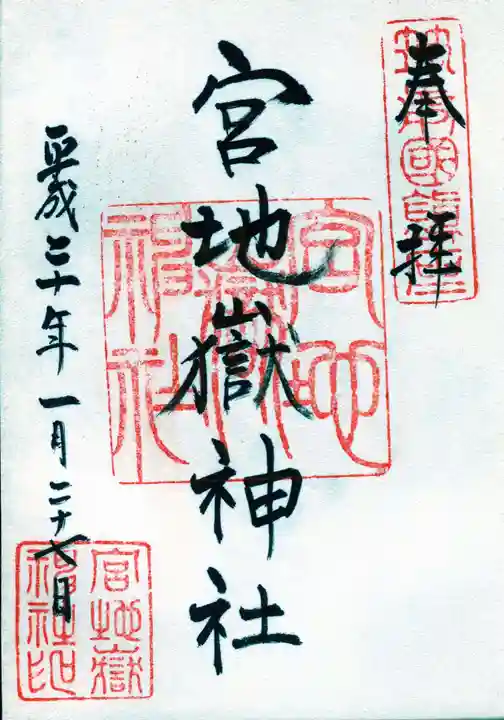 奉拝
宮地嶽神社
平成二十年一月二十七日
宮地嶽神社
宮地嶽神社印